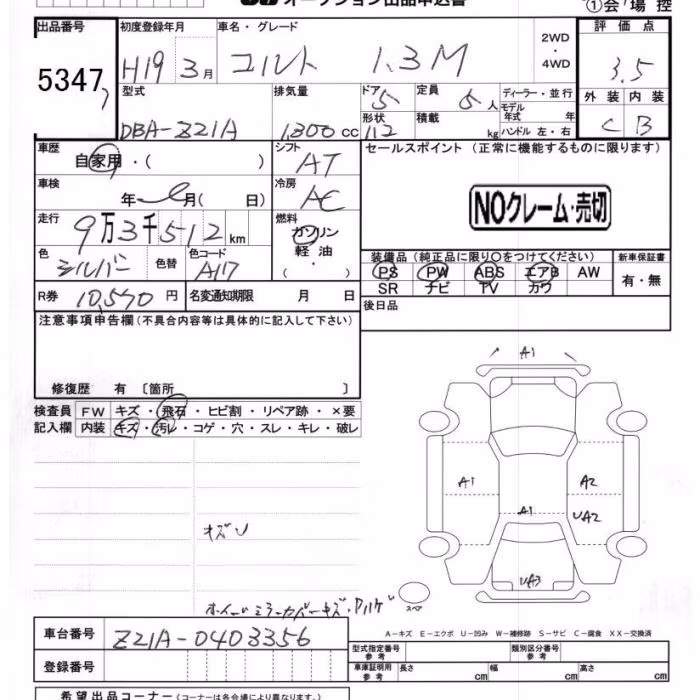 オークション出品申込書
①会場控
出品番号
5347
初度登録年月
H19 3月
車名・グレード
コルト 1.3M
2WD・4WD
評価点
3.5
外装 内装
C B
型式
DBA-Z21A
排気量
1,300cc
ドア 5
形状
定員 5人
積載 kg
ディーラー・並行
モデル年式 年
ハンドル 左・右
車歴
自家用・( )
シフト
AT
車検
年 月( 日)
冷房
AC
走行
9万3千512km
燃料
ガソリン
軽油
・
色
シルバー
色替
色コード
A17
R券 10,570円
名変通知期限 月 日
セールスポイント (正常に機能するものに限ります)
NOクレーム・売切
装備品(純正品に限り○をつけてください)
PS PW ABS エアB AW
SR ナビ TV カワ
新車保証書
有・無
後日品
注意事項申告欄(不具合内容等は具体的に記入して下さい)
修復歴 有〔箇所 〕
検査員記入欄
FW キズ・飛石・ヒビ割・リペア跡・×要
内装 キズ・汚レ・コゲ・穴・スレ・キレ・破レ
A1
A1 A2
A1 UA2
UA3
キズU
ホイールミラーカバーキズ・ハゲ
スペア
A-キズ E-エクボ U-凹み W-補修跡 S-サビ C-腐食 XX-交換済
車台番号 Z21A-0403356
登録番号
型式指定番号 参考
類別区分番号 参考
車庫証明用 参考 長さ cm 幅 cm 高さ cm
希望出品コーナー(コーナーは各会場により異なります。)